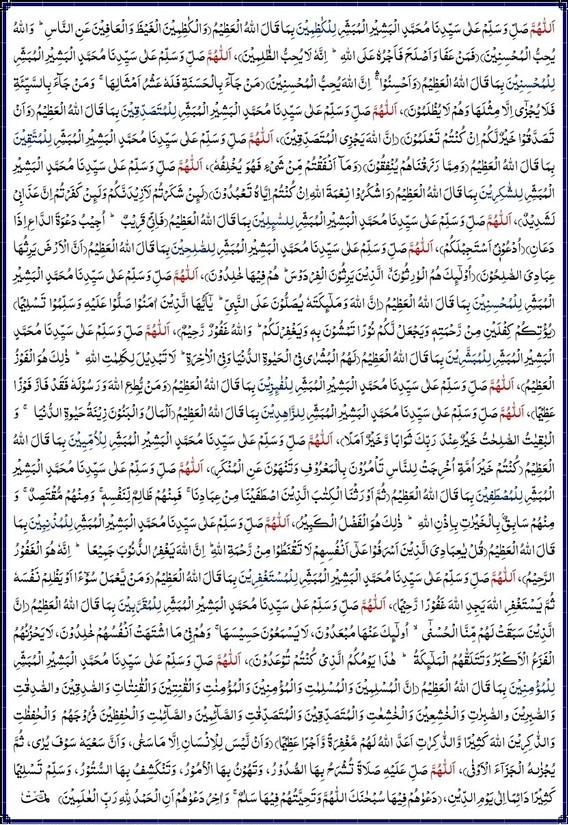 اَللّٰهُمَّ صَلِّ وَسَلِّمْ عَلٰى سَيِّدِنَا مُحَمَّدٍ الْبَشِيْرِ الْمُبَشِّرِ لِلْكٰظِمِيْنَ بِمَا قَالَ اللهُ الْعَظِيْمُ ﴿وَالْكٰظِمِيْنَ الْغَيْظَ وَالْعَافِيْنَ عَنِ النَّاسِ ؕ وَاللهُ
يُحِبُّ الْمُحْسِنِيْنَ﴾ ﴿فَمَنْ عَفَا وَاَصْلَحَ فَاَجْرُهٗ عَلَى اللهِ ؕ اِنَّهٗ لَا يُحِبُّ الظّٰلِمِيْنَ﴾، اَللّٰهُمَّ صَلِّ وَسَلِّمْ عَلٰى سَيِّدِنَا مُحَمَّدٍ الْبَشِيْرِ الْمُبَشِّرِ
لِلْمُحْسِنِيْنَ بِمَا قَالَ اللهُ الْعَظِيْمُ ﴿وَاَحْسِنُوْا ۛ اِنَّ اللهَ يُحِبُّ الْمُحْسِنِيْنَ﴾ ﴿مَنْ جَآءَ بِالْحَسَنَةِ فَلَهٗ عَشْرُ اَمْثَالِهَا ۚ وَمَنْ جَآءَ بِالسَّيِّئَةِ
فَلَا يُجْزٰى اِلَّا مِثْلَهَا وَهُمْ لَا يُظْلَمُوْنَ﴾، اَللّٰهُمَّ صَلِّ وَسَلِّمْ عَلٰى سَيِّدِنَا مُحَمَّدٍ الْبَشِيْرِ الْمُبَشِّرِ لِلْمُتَصَدِّقِيْنَ بِمَا قَالَ اللهُ الْعَظِيْمُ ﴿وَاَنْ
تَصَدَّقُوْا خَيْرٌ لَّكُمْ اِنْ كُنْتُمْ تَعْلَمُوْنَ﴾ ﴿اِنَّ اللهَ يَجْزِى الْمُتَصَدِّقِيْنَ﴾، اَللّٰهُمَّ صَلِّ وَسَلِّمْ عَلٰى سَيِّدِنَا مُحَمَّدٍ الْبَشِيْرِ الْمُبَشِّرِ لِلْمُتَّقِيْنَ
بِمَا قَالَ اللهُ الْعَظِيْمُ ﴿وَمِمَّا رَزَقْنٰهُمْ يُنْفِقُوْنَ﴾ ﴿وَمَآ اَنْفَقْتُمْ مِّنْ شَىْءٍ فَهُوَ يُخْلِفُهٗ﴾، اَللّٰهُمَّ صَلِّ وَسَلِّمْ عَلٰى سَيِّدِنَا مُحَمَّدٍ الْبَشِيْرِ
الْمُبَشِّرِ لِلشّٰكِرِيْنَ بِمَا قَالَ اللهُ الْعَظِيْمُ ﴿وَاشْكُرُوْا نِعْمَةَ اللهِ اِنْ كُنْتُمْ اِيَّاهُ تَعْبُدُوْنَ﴾ ﴿لَئِنْ شَكَرْتُمْ لَاَزِيْدَنَّكُمْ وَلَئِنْ كَفَرْتُمْ اِنَّ عَذَابِىْ
لَشَدِيْدٌ﴾، اَللّٰهُمَّ صَلِّ وَسَلِّمْ عَلٰى سَيِّدِنَا مُحَمَّدٍ الْبَشِيْرِ الْمُبَشِّرِ لِلسَّآئِلِيْنَ بِمَا قَالَ اللهُ الْعَظِيْمُ ﴿فَاِنِّىْ قَرِيْبٌ ؕ اُجِيْبُ دَعْوَةَ الدَّاعِ اِذَا
دَعَانِ﴾ ﴿ادْعُوْنِىْٓ اَسْتَجِبْ لَكُمْ﴾، اَللّٰهُمَّ صَلِّ وَسَلِّمْ عَلٰى سَيِّدِنَا مُحَمَّدٍ الْبَشِيْرِ الْمُبَشِّرِ لِلصّٰلِحِيْنَ بِمَا قَالَ اللهُ الْعَظِيْمُ ﴿اَنَّ الْاَرْضَ يَرِثُهَا
عِبَادِىَ الصّٰلِحُوْنَ﴾ ﴿اُولٰٓئِكَ هُمُ الْوٰرِثُوْنَ ۙ الَّذِيْنَ يَرِثُوْنَ الْفِرْدَوْسَ ؕ هُمْ فِيْهَا خٰلِدُوْنَ﴾، اَللّٰهُمَّ صَلِّ وَسَلِّمْ عَلٰى سَيِّدِنَا مُحَمَّدٍ الْبَشِيْرِ
الْمُبَشِّرِ لِلْمُحْسِنِيْنَ بِمَا قَالَ اللهُ الْعَظِيْمُ ﴿اِنَّ اللهَ وَمَلٰٓئِكَتَهٗ يُصَلُّوْنَ عَلَى النَّبِىِّ ؕ يٰٓاَيُّهَا الَّذِيْنَ اٰمَنُوْا صَلُّوْا عَلَيْهِ وَسَلِّمُوْا تَسْلِيْمًا﴾
﴿يُؤْتِكُمْ كِفْلَيْنِ مِنْ رَّحْمَتِهٖ وَيَجْعَلْ لَّكُمْ نُوْرًا تَمْشُوْنَ بِهٖ وَيَغْفِرْ لَكُمْ ؕ وَاللهُ غَفُوْرٌ رَّحِيْمٌ﴾، اَللّٰهُمَّ صَلِّ وَسَلِّمْ عَلٰى سَيِّدِنَا مُحَمَّدٍ
الْبَشِيْرِ الْمُبَشِّرِ لِلْمُبَشَّرِيْنَ بِمَا قَالَ اللهُ الْعَظِيْمُ ﴿لَهُمُ الْبُشْرٰى فِى الْحَيٰوةِ الدُّنْيَا وَفِى الْاٰخِرَةِ ؕ لَا تَبْدِيْلَ لِكَلِمٰتِ اللهِ ؕ ذٰلِكَ هُوَ الْفَوْزُ
الْعَظِيْمُ﴾، اَللّٰهُمَّ صَلِّ وَسَلِّمْ عَلٰى سَيِّدِنَا مُحَمَّدٍ الْبَشِيْرِ الْمُبَشِّرِ لِلْفَآئِزِيْنَ بِمَا قَالَ اللهُ الْعَظِيْمُ ﴿وَمَنْ يُّطِعِ اللهَ وَرَسُوْلَهٗ فَقَدْ فَازَ فَوْزًا
عَظِيْمًا﴾، اَللّٰهُمَّ صَلِّ وَسَلِّمْ عَلٰى سَيِّدِنَا مُحَمَّدٍ الْبَشِيْرِ الْمُبَشِّرِ لِلزَّاهِدِيْنَ بِمَا قَالَ اللهُ الْعَظِيْمُ ﴿اَلْمَالُ وَالْبَنُوْنَ زِيْنَةُ حَيٰوةِ الدُّنْيَا ۚ وَ
الْبٰقِيٰتُ الصّٰلِحٰتُ خَيْرٌ عِنْدَ رَبِّكَ ثَوَابًا وَّخَيْرٌ اَمَلًا﴾، اَللّٰهُمَّ صَلِّ وَسَلِّمْ عَلٰى سَيِّدِنَا مُحَمَّدٍ الْبَشِيْرِ الْمُبَشِّرِ لِلْاُمِّيِّيْنَ بِمَا قَالَ اللهُ
الْعَظِيْمُ ﴿كُنْتُمْ خَيْرَ اُمَّةٍ اُخْرِجَتْ لِلنَّاسِ تَاْمُرُوْنَ بِالْمَعْرُوْفِ وَتَنْهَوْنَ عَنِ الْمُنْكَرِ﴾، اَللّٰهُمَّ صَلِّ وَسَلِّمْ عَلٰى سَيِّدِنَا مُحَمَّدٍ الْبَشِيْرِ الْمُبَشِّرِ
لِلْمُصْطَفَيْنَ بِمَا قَالَ اللهُ الْعَظِيْمُ ﴿ثُمَّ اَوْرَثْنَا الْكِتٰبَ الَّذِيْنَ اصْطَفَيْنَا مِنْ عِبَادِنَا ۚ فَمِنْهُمْ ظَالِمٌ لِّنَفْسِهٖ ۚ وَمِنْهُمْ مُّقْتَصِدٌ ۚ وَ
مِنْهُمْ سَابِقٌۢ بِالْخَيْرٰتِ بِاِذْنِ اللهِ ؕ ذٰلِكَ هُوَ الْفَضْلُ الْكَبِيْرُ﴾، اَللّٰهُمَّ صَلِّ وَسَلِّمْ عَلٰى سَيِّدِنَا مُحَمَّدٍ الْبَشِيْرِ الْمُبَشِّرِ لِلْمُذْنِبِيْنَ بِمَا
قَالَ اللهُ الْعَظِيْمُ ﴿قُلْ يٰعِبَادِىَ الَّذِيْنَ اَسْرَفُوْا عَلٰٓى اَنْفُسِهِمْ لَا تَقْنَطُوْا مِنْ رَّحْمَةِ اللهِ ؕ اِنَّ اللهَ يَغْفِرُ الذُّنُوْبَ جَمِيْعًا ؕ اِنَّهٗ هُوَ الْغَفُوْرُ
الرَّحِيْمُ﴾، اَللّٰهُمَّ صَلِّ وَسَلِّمْ عَلٰى سَيِّدِنَا مُحَمَّدٍ الْبَشِيْرِ الْمُبَشِّرِ لِلْمُسْتَغْفِرِيْنَ بِمَا قَالَ اللهُ الْعَظِيْمُ ﴿وَمَنْ يَّعْمَلْ سُوْٓءًا اَوْ يَظْلِمْ نَفْسَهٗ
ثُمَّ يَسْتَغْفِرِ اللهَ يَجِدِ اللهَ غَفُوْرًا رَّحِيْمًا﴾، اَللّٰهُمَّ صَلِّ وَسَلِّمْ عَلٰى سَيِّدِنَا مُحَمَّدٍ الْبَشِيْرِ الْمُبَشِّرِ لِلْمُقَرَّبِيْنَ بِمَا قَالَ اللهُ الْعَظِيْمُ ﴿اِنَّ
الَّذِيْنَ سَبَقَتْ لَهُمْ مِّنَّا الْحُسْنٰٓى ۙ اُولٰٓئِكَ عَنْهَا مُبْعَدُوْنَ، لَا يَسْمَعُوْنَ حَسِيْسَهَا ۚ وَهُمْ فِىْ مَا اشْتَهَتْ اَنْفُسُهُمْ خٰلِدُوْنَ، لَا يَحْزُنُهُمُ
الْفَزَعُ الْاَكْبَرُ وَتَتَلَقّٰىهُمُ الْمَلٰٓئِكَةُ ؕ هٰذَا يَوْمُكُمُ الَّذِىْ كُنْتُمْ تُوْعَدُوْنَ﴾، اَللّٰهُمَّ صَلِّ وَسَلِّمْ عَلٰى سَيِّدِنَا مُحَمَّدٍ الْبَشِيْرِ الْمُبَشِّرِ
لِلْمُؤْمِنِيْنَ بِمَا قَالَ اللهُ الْعَظِيْمُ ﴿اِنَّ الْمُسْلِمِيْنَ وَالْمُسْلِمٰتِ وَالْمُؤْمِنِيْنَ وَالْمُؤْمِنٰتِ وَالْقٰنِتِيْنَ وَالْقٰنِتٰتِ وَالصّٰدِقِيْنَ وَالصّٰدِقٰتِ
وَالصّٰبِرِيْنَ وَالصّٰبِرٰتِ وَالْخٰشِعِيْنَ وَالْخٰشِعٰتِ وَالْمُتَصَدِّقِيْنَ وَالْمُتَصَدِّقٰتِ وَالصَّآئِمِيْنَ وَالصّٰٓئِمٰتِ وَالْحٰفِظِيْنَ فُرُوْجَهُمْ وَالْحٰفِظٰتِ
وَالذّٰكِرِيْنَ اللهَ كَثِيْرًا وَّالذّٰكِرٰتِ اَعَدَّ اللهُ لَهُمْ مَّغْفِرَةً وَّاَجْرًا عَظِيْمًا﴾ ﴿وَاَنْ لَّيْسَ لِلْاِنْسَانِ اِلَّا مَا سَعٰى، وَاَنَّ سَعْيَهٗ سَوْفَ يُرٰى، ثُمَّ
يُجْزٰىهُ الْجَزَآءَ الْاَوْفٰى﴾، اَللّٰهُمَّ صَلِّ عَلَيْهِ صَلَاةً تُشْرَحُ بِهَا الصُّدُوْرُ، وَتَهُوْنُ بِهَا الْاُمُوْرُ، وَتَنْكَشِفُ بِهَا السُّتُوْرُ، وَسَلِّمْ تَسْلِيْمًا
كَثِيْرًا دَآئِمًا اِلٰى يَوْمِ الدِّيْنِ، ﴿دَعْوٰهُمْ فِيْهَا سُبْحٰنَكَ اللّٰهُمَّ وَتَحِيَّتُهُمْ فِيْهَا سَلٰمٌ ۚ وَاٰخِرُ دَعْوٰهُمْ اَنِ الْحَمْدُ لِلّٰهِ رَبِّ الْعٰلَمِيْنَ﴾